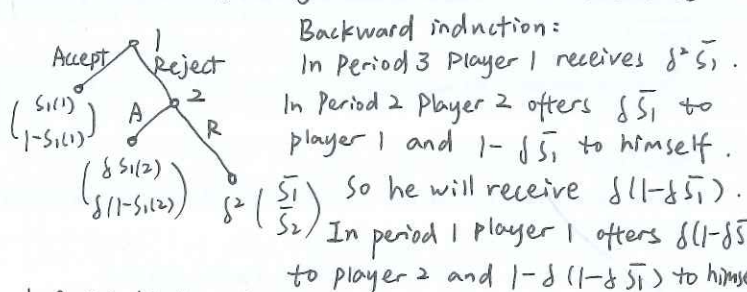 Backward induction:
In Period 3 Player 1 receives δ² S̄₁.
In Period 2 Player 2 offers δS̄₁ to
player 1 and 1-δS̄₁ to himself.
So he will receive δ(1-δS̄₁).
In period 1 player 1 offers δ(1-δS̄
to player 2 and 1-δ(1-δS̄₁) to himse
1
Accept
Reject
(S₁(1)
1-S₁(1))
A
2
R
(δS₁(2)
δ(1-S₁(2))
δ² (S̄₁
S̄₂)